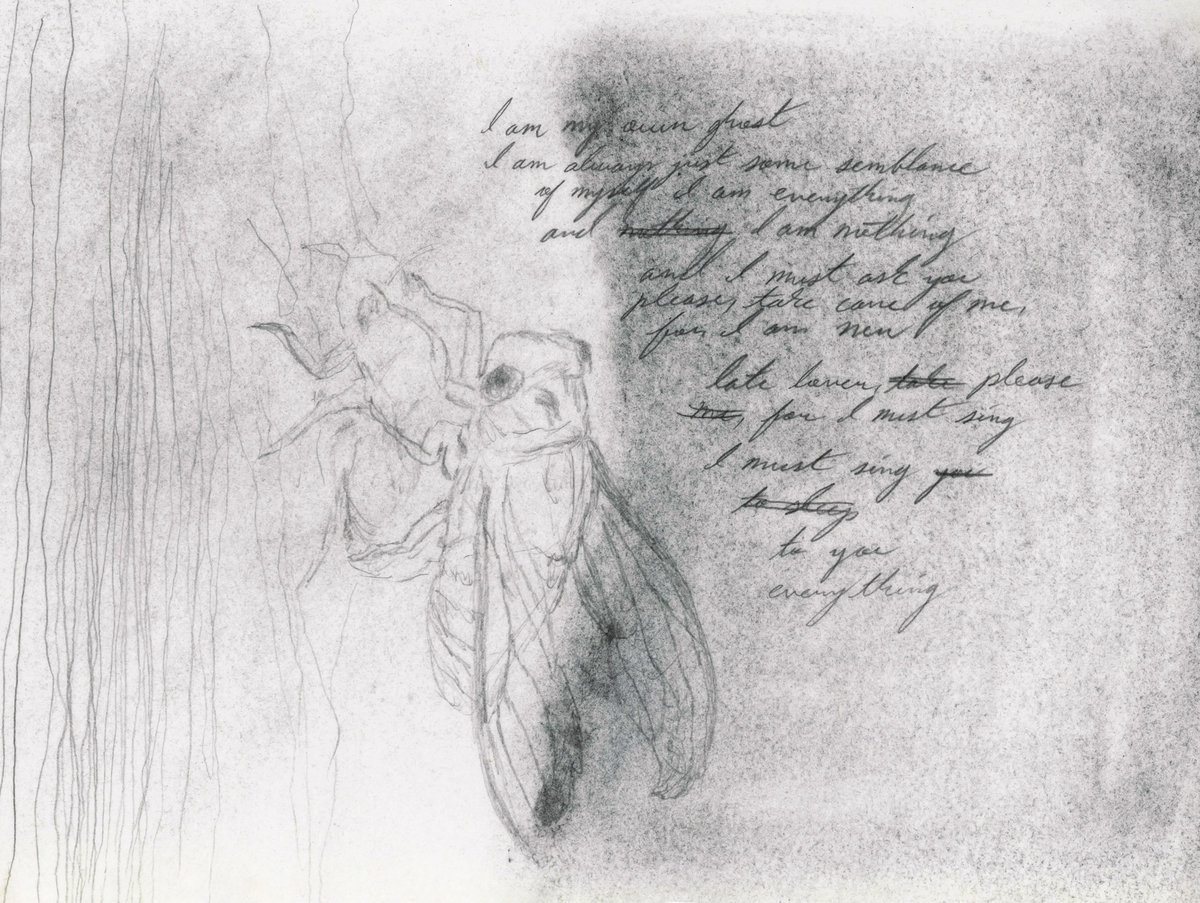 I am my own ghost
I am always just some semblance
of myself I am everything
and nothing I am nothing
and I must ask you
please, take care of me,
for, I am new
late lover, take please
me, for I must sing
I must sing you
to sleep
to you
everything